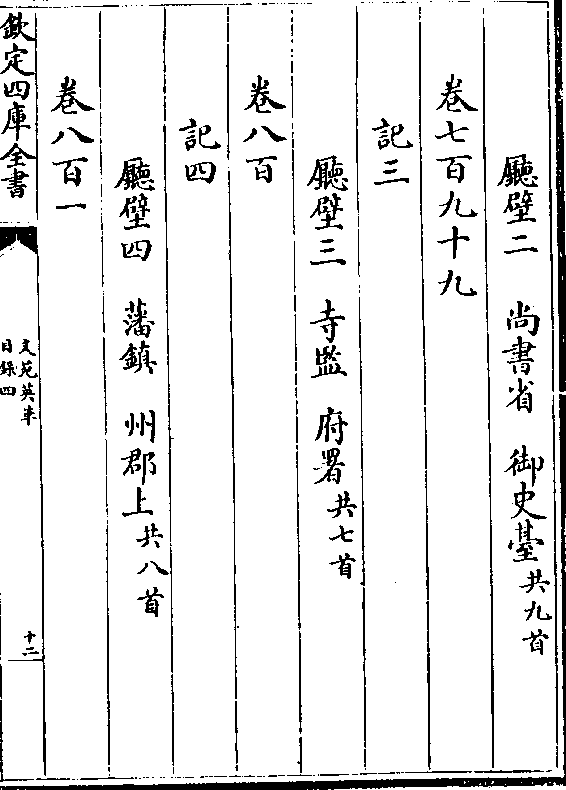 廳壁二　尚書省　御史臺共九首
卷七百九十九
記三
廳壁三　寺監　府署共七首
卷八百
記四
廳壁四　藩鎮　州郡上共八首
卷八百一
欽定四庫全書
文苑英華
目録四
十二